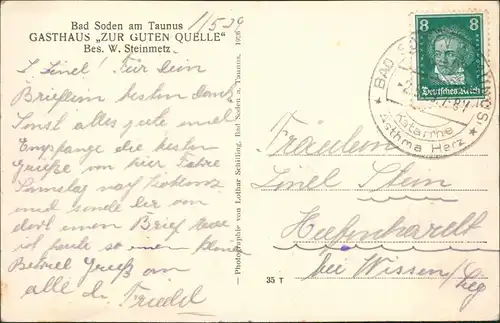 Bad Soden am Taunus
GASTHAUS „ZUR GUTEN QUELLE"
Bes. W. Steinmetz
11/5 29
L. Linel! Für dein
Brieflein besten Dank,
Sonst alles gute und
Empfange die besten
Grüße von hier Fahre
Samstag nach Koblenz
und sende dir von
dort einen Brief
ich heute so einen
Gruß an
alle d. Friedel
— Photographie von Lothar Schilling, Bad Soden a. Taunus,
35 T
8 8
Deutsches Reich
BAD SODEN TAUNUS
Katarrhe
Asthma Herz
Fräulein
Linel Stein
Hufenhardt
bei Wissen/Sieg